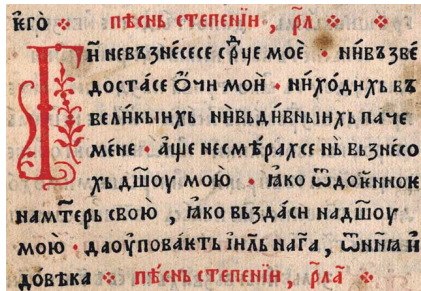 ѥго̀ ⁘ пѣ́снь степе́нїи , рл҃ ⁘ ⁘
Ги҃ невъзне́сесе ср҃це моѐ • ни́възве
доста́се ѻ҆́чи моѝ • нихо́дихь въ
вели́кыихь нѝвьди́вныихь паче
ме́не • а҆́ще несмѣ́рахсе нь̀ вьзне́со
хь дш҃оу мою̀ • ꙗ҆́ко ѿдое́нное
на мт҃ерь свою̀ , ꙗ҆́ко вьзда́си на дш҃оу
мою̀ • да оу҆пова́ѥть і҆и҃ль на г҃а , ѿнн҃ꙗ и҆
до́вѣка ⁘ пѣ́снь степе́нїи , рл҃а ⁘